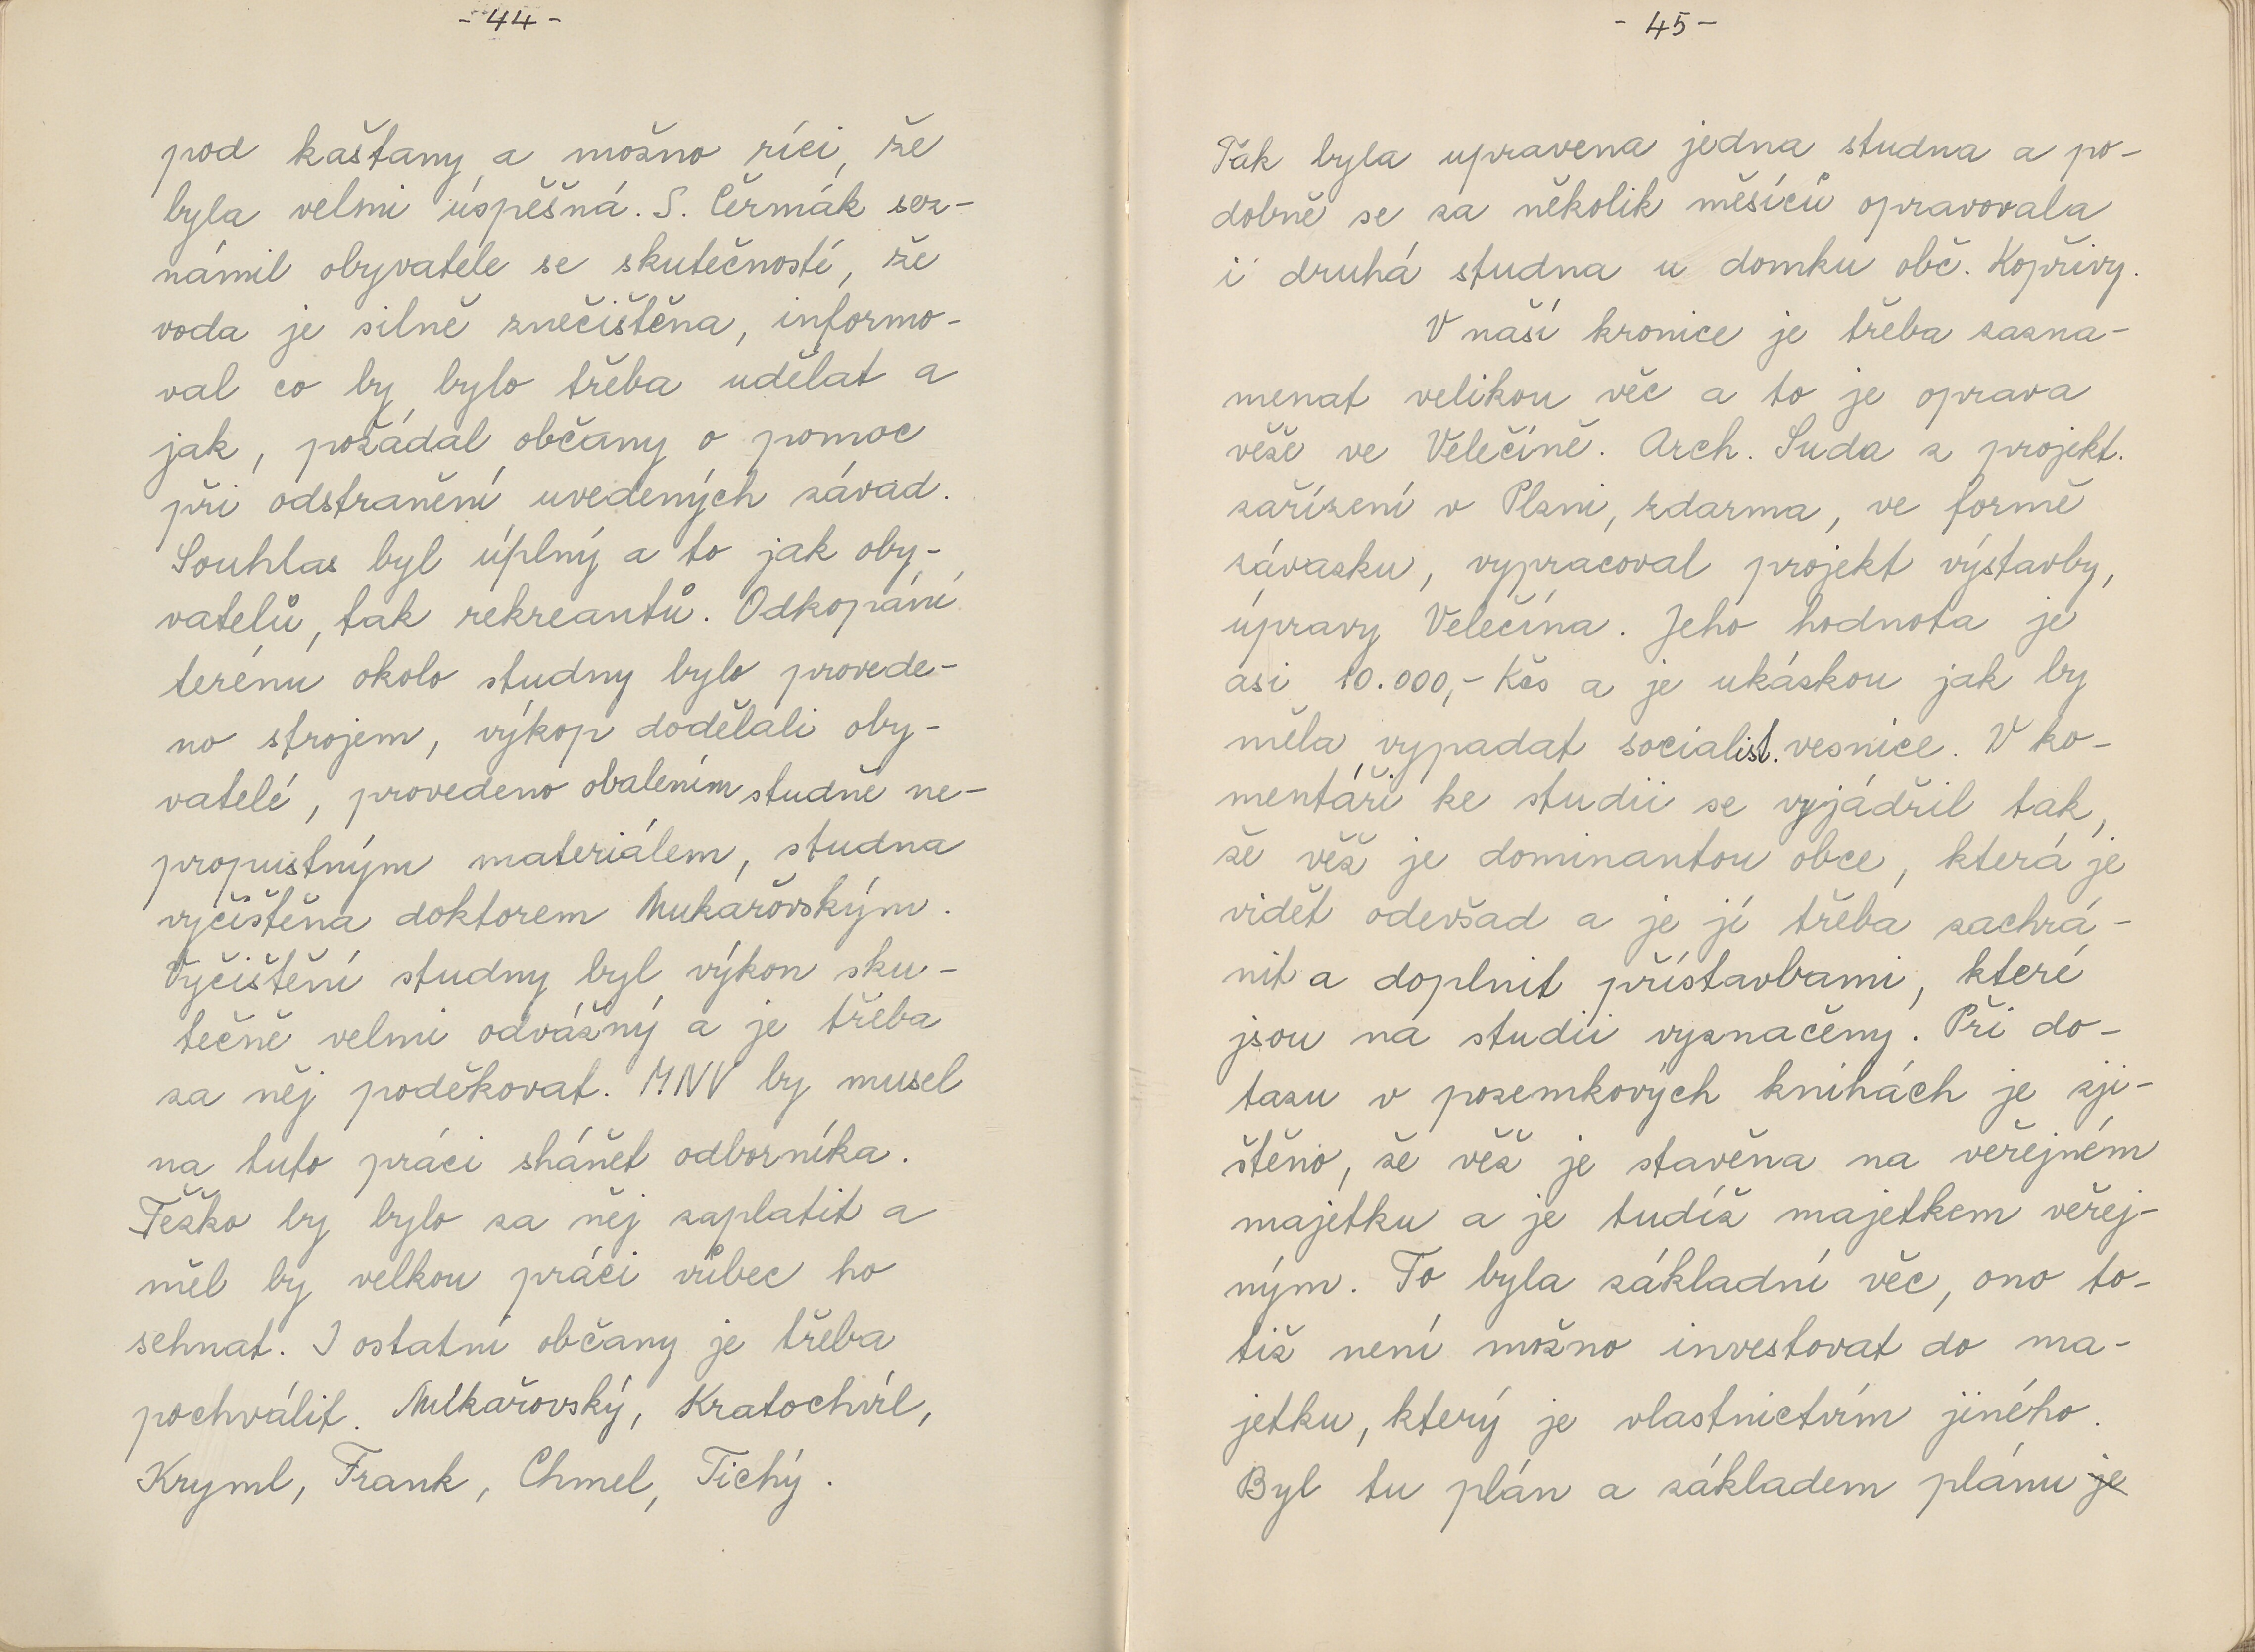 - 44 -
pod kaštany a možno říci, že
byla velmi úspěšná. S. Čermák sez-
námil obyvatele se skutečností, že
voda je silně znečištěna, informo-
val co by bylo třeba udělat a
jak, požádal občany o pomoc
při odstranění uvedených závad.
Souhlas byl úplný a to jak oby-
vatelů, tak rekreantů. Odkopání
terénu okolo studny bylo provede-
no strojem, výkop dodělali oby-
vatelé, provedeno obalením studně ne-
propustným materiálem, studna
vyčištěna doktorem Mukařovským.
Vyčištění studny byl výkon sku-
tečně velmi odvážný a je třeba
za něj poděkovat. MNV by musel
na tuto práci shánět odborníka.
Težko by bylo za něj zaplatit a
měl by velkou práci vůbec ho
sehnat. I ostatní občany je třeba
pochválit. Mukařovský, Kratochvíl,
Kryml, Frank, Chmel, Tichý.
- 45 -
Tak byla upravena jedna studna a po-
dobně se za několik měsíců opravovala
i druhá studna u domku obč. Kopřivy.
V naší kronice je třeba zazna-
menat velikou věc a to je oprava
věže ve Velečíně. Arch. Suda z projekt.
zařízení v Plzni, zdarma, ve formě
závazku, vypracoval projekt výstavby,
úpravy Velečína. Jeho hodnota je
asi 10.000,- Kčs a je ukázkou jak by
měla vypadat socialist. vesnice. V ko-
mentáři ke studii se vyjádřil tak,
že věž je dominantou obce, která je
vidět odevšad a je jí třeba zachrá-
nit a doplnit přístavbami, které
jsou na studii vyznačeny. Při do-
tazu v pozemkových knihách je zji-
štěno, že věž je stavěna na veřejném
majetku a je tudíž majetkem veřej-
ným. To byla základní věc, ono to-
tiž není možno investovat do ma-
jetku, který je vlastnictvím jiného.
Byl tu plán a základem plánu je